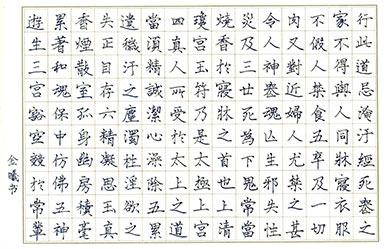 行此道忌淹汙經死喪之
家不得與人同牀寢衣服
不假人禁食五辛及一切
肉又對近婦人尤禁之
令人神喪魂亡生邪失性
災及三世死爲下鬼常當
燒香於寢牀之首也上清
瓊宮玉符乃是太極上宮
四真人所受於太上之道
當須精誠潔心澡除五累
遺穢汙之塵濁杜淫欲之
失正目存六精凝思玉真
香煙散室孤身幽房積毫
累著和魂保中仿佛五神
遊生三宮豁空競於常輩
金曦书